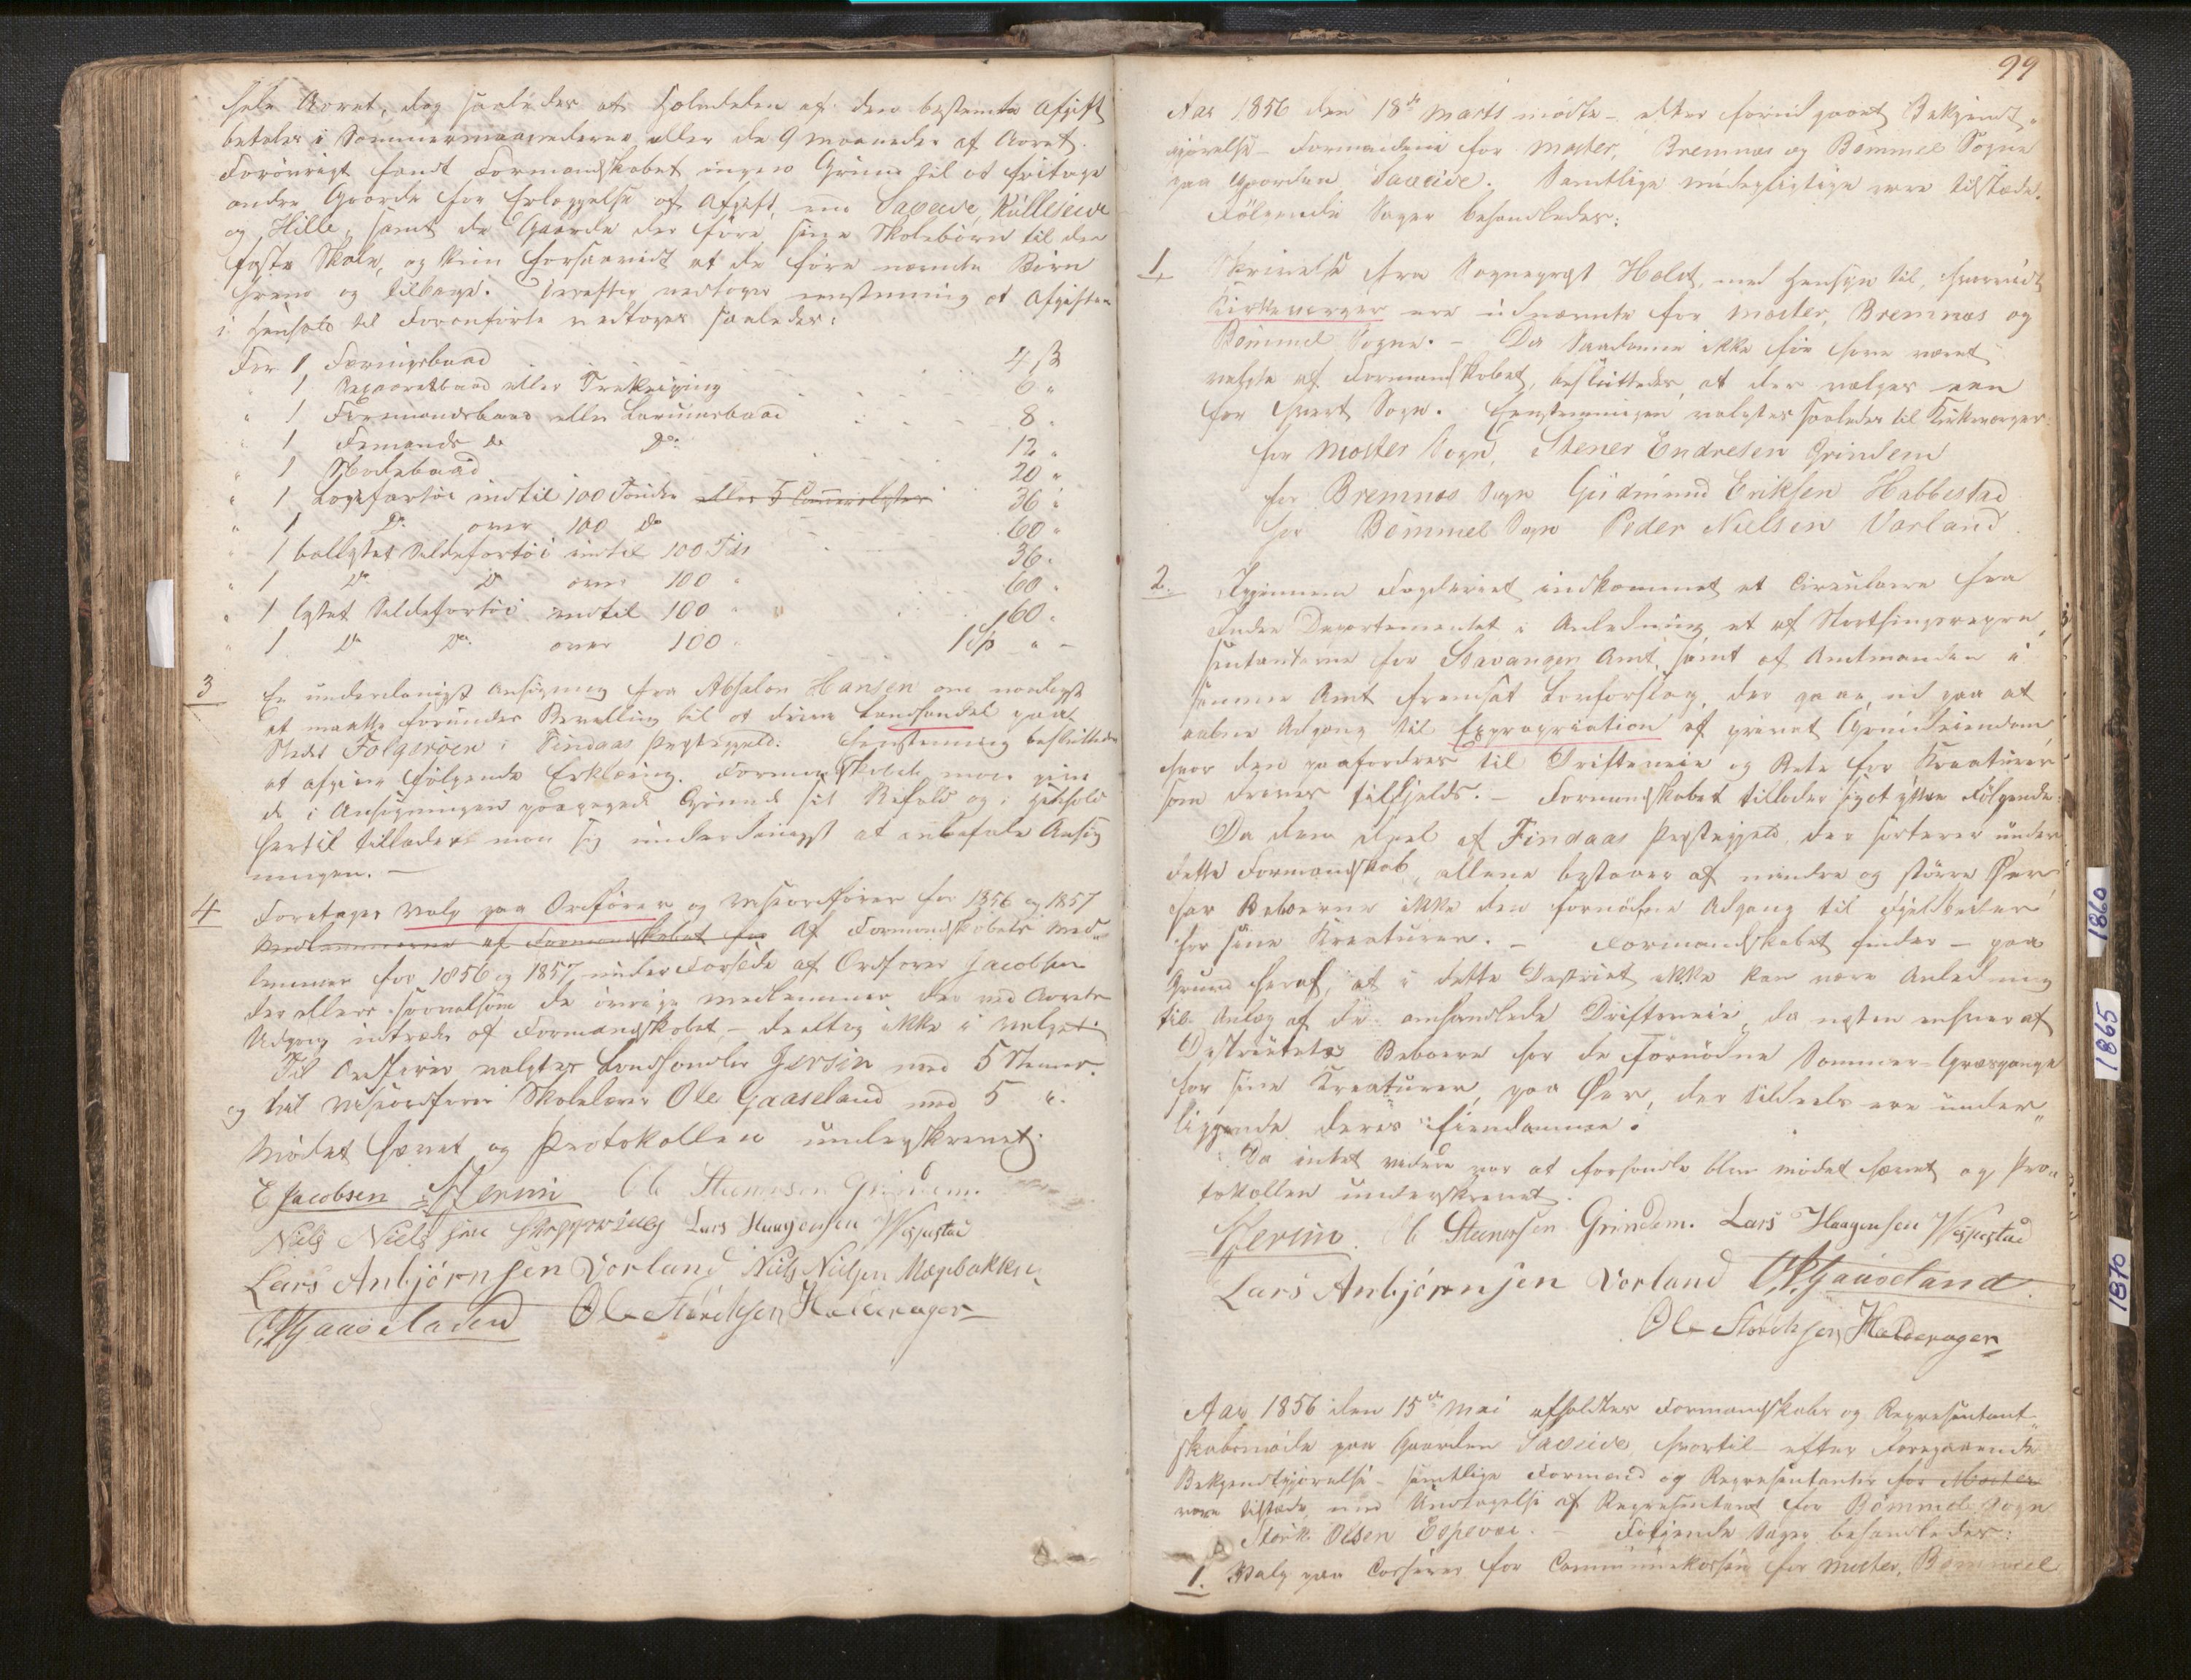 hele Aaret, dog saaledes at halvdelen af den bestemte Afgift
betales i Sommermaanederne eller de 9 Maaneder af Aaret.
Forøvrigt fandt Formandskabet ingen Grund til at fritage
andre Gaarde for Erlæggelse af Afgift, end Saxeide, Kulleseide
og Hille, samt de Gaarde der føre sine Skolebørn til den
faste Skole, og kun forsaavidt at de føre nævnte Børn
frem og tilbage. Derefter vedtoges eenstemmig at Afgiften
i Henhold til Foranførte vedtoges saaledes:
For 1 Færingsbaad 4 ß
" 1 Sexæringsbaad eller Trekeiping 6 "
" 1 Firemandsbaad eller 8 "
" 1 Femmands do Do 12 "
" 1 Skudebaad 20 "
" 1 Logefartøi indtil 100 Tønder eller 5 Commerselæster 36 "
" 1 Do over 100 do 60 "
" 1 ballastet Sildefartøi indtil 100 Tdr 36 "
" 1 Do Do over 100 " 60 "
" 1 lastet Sildefartøi indtil 100 " 60 "
" 1 Do Do over 100 " 1 Sp " -
3 En underdanigst Ansøgning fra Absalon Hansen om naadigst
at maatte forundes Bevilling til at drive Landhandel paa
Stedet Folgerøen i Findaas Præstegjeld. Eenstemmig besluttedes
at afgive følgende Erklæring. Formandskabet maa give
de i Ansøgningen paagegede Grunde sit Bifald og i Henhold
hertil tillader man sig underdanigst at anbefale Ansøg
ningen. —
4 Foretoges Valg paa Ordfører og Viceordfører for 1856 og 1857
Medlemmerne af Formandskabet for Af Formandskabets Med-
lemmer for 1856 og 1857 under Forsæde af Ordfører Jacobsen
der ellers saavelsom de øvrige Medlemmer der ved Aarets
Udgang udtræde af Formandskabet, — deeltog ikke i Valget.
Til Ordfører valgtes Landhandler Jersin med 5 Stemmer.
og til Viceordfører Skolelærer Ole Gaaseland med 5 ".
Mødet hævet og Protokollen underskrevet.
E Jacobsen Jersin Ole Steenersen Grindem.
Niels Nielssøn Lars Haagensen Wespestad
Lars Anbjørnsen Vorland Niels Nielsen Mægebakken
O. Gaaseland Ole Størchsen Hallerager
99
Aar 1856 den 18de Marts mødte — efter forudgaaet Bekjendt-
gjørelse — Formændene for Moster, Bremnæs og Bømmel Sogne
paa Gaarden Saxeide. Samtlige mødepligtige vare tilstede.
Følgende Sager behandledes:
1 Skrivelse fra Sognepræst Holst, med Hensyn til, hvorvidt
Kirkeværger ere udnævnte for Moster, Bremnæs og
Bømmel Sogne. — Da Saadanne ikke før have været
valgte af Formandskabet, besluttedes, at der vælges een
for hvert Sogn. Eenstemmigen valgtes saaledes til Kirkeværger:
for Moster Sogn, Stener Endresen Grindem
for Bremnæs Sogn Gudmund Eriksen Habbestad
for Bømmel Sogn Peder Nielsen Vorland.
2. Igjennem Fogderiet indkommet et Circulære fra
Indre Departementet i Anledning et af Storthingsrepræ-
sentanterne for Stavanger Amt, samt af Amtmanden i
samme Amt fremsat Lovforslag, der gaar ud paa at
aabne Adgang til Expropriation af privat Grundeiendom
hvor den paafordres til Drifteveie og Rete for Kreaturer
som drives tilfjelds. — Formandskabet tillader sig at ytre Følgende:
Da den Deel af Findaas Præstegjeld, der sorterer under
dette Formandskab, allene bestaaer af mindre og større Øer,
har Beboerne ikke den fornødne Adgang til Fjeldbeiter
for sine Kreaturer. — Formandskabet finder — paa
Grund heraf, at i dette District ikke kan være Anledning
til Anlæg af de omhandlede Drifteveie, da næsten enhver af
Districtets Beboere har de fornødne Sommer-Græsgange
for sine Kreaturer, paa Øer, der tildeels ere under-
liggende deres Eiendomme.
Da intet videre var at forhandle blev mødet hævet og Pro-
tokollen underskrevet.
Jersin. O Steenersen Grindem. Lars Haagensen Wespestad
Lars Anbjørnsen Vorland O. Gaaseland
Ole Størchsen Hallerager
Aar 1856 den 15de Mai afholdtes Formandskabs og Repræsentant-
skabsmøde paa Gaarden Saxeide, hvortil — efter Foregaaende
Bekjendtgjørelse — samtlige Formænd og Repræsentanter for Moster
vare tilstede, med Undtagelse af Repræsentant for Bømmel Sogn
Størk Olsen Espevær. — Følgende Sager behandledes:
1. Valg paa Casserer for Communekassen for Moster, Bømmel
1860
1865
1870